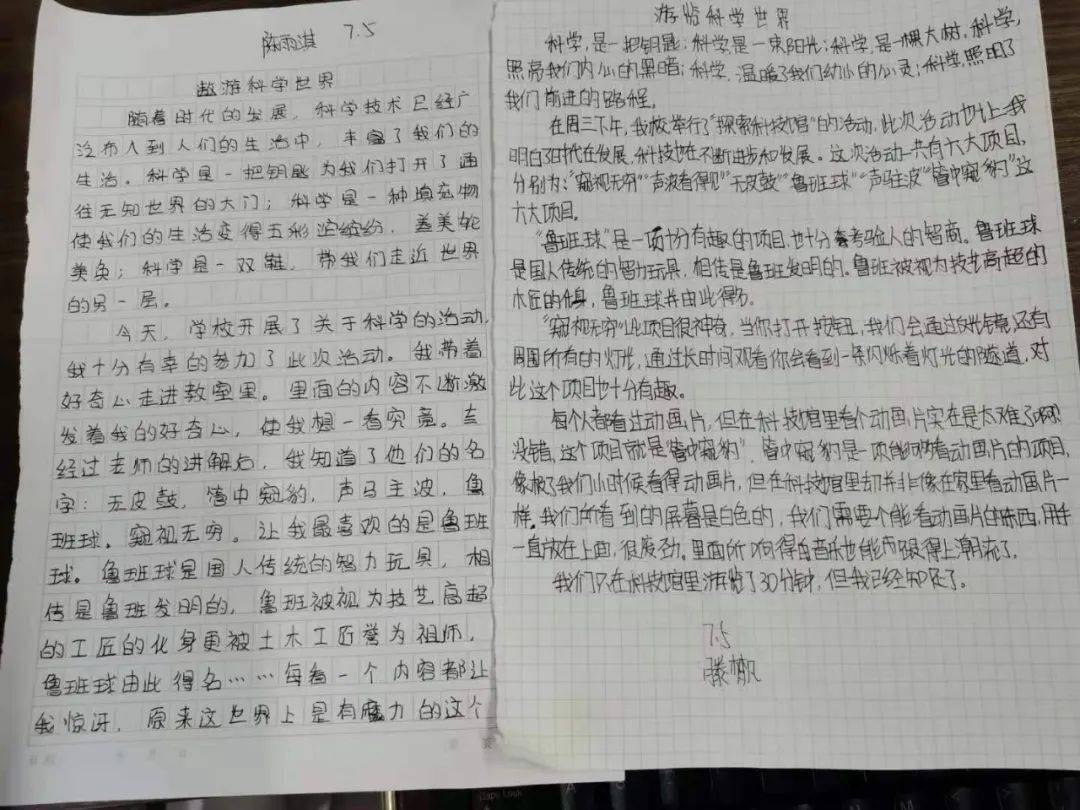 陈雨淇 7.5
遨游科学世界
随着时代的发展，科学技术已经广
泛布入到人们的生活中，丰富了我们的
生活。科学是一把钥匙为我们打开了通
往无知世界的大门；科学是一种填充物
使我们的生活变得五彩缤纷，美轮
美奂；科学是一双鞋，带我们走近世界
的另一层。
今天，学校开展了关于科学的活动，
我十分有幸的参加了此次活动。我带着
好奇心走进教室里。里面的内容不断激
发着我的好奇心，使我想一看究竟。
经过老师的讲解后，我知道了他们的名
字：无皮鼓，管中窥豹，声马主波，鲁
班球，窥视无穷。让我最喜欢的是鲁班
球。鲁班球是国人传统的智力玩具，相
传是鲁班发明的，鲁班被视为技艺高超
的工匠的化身更被土木工匠誉为祖师，
鲁班球由此得名……每看一个内容都让
我惊讶，原来这世界上是有魔力的这个
游览科学世界
科学，是一把钥匙；科学是一束阳光；科学，是一棵大树，科学，
照亮我们内心的黑暗；科学，温暖了我们幼小的心灵；科学，照明了
我们前进的路程。
在周三下午，我校举行了“探索科技馆”的活动，此次活动也让我
明白了时代在发展，科技也在不断进步和发展。这次活动一共有六大项目，
分别为：“窥视无穷”“声波看得见”“无皮鼓”“鲁班球”“声驻波”“管中窥豹”这
六大项目。
“鲁班球”是一项十分有趣的项目，也十分考验人的智商。鲁班球
是国人传统的智力玩具，相传是鲁班发明的。鲁班被视为技艺高超的
木匠的化身，鲁班球并由此得名。
“窥视无穷”此项目很神奇，当你打开按钮，我们会通过反光镜，还有
周围所有的灯光，通过长时间观看你会看到一条闪烁着灯光的隧道，对
比这个项目也十分有趣。
每个人都看过动画片，但在科技馆里看个动画片实在是太难了啊！
没错，这个项目就是“管中窥豹”，管中窥豹是一项能够看动画片的项目，
像极了我们小时候看得动画片，但在科技馆里却并非像在家里看动画片一
样。我们所看到的屏幕是白色的，我们需要个能看动画片的东西，用手
一直放在上面，很废劲。里面所响得音乐也能跟得上潮流了。
我们只在科技馆里游览了30分钟，但我已经知足了。
7.5